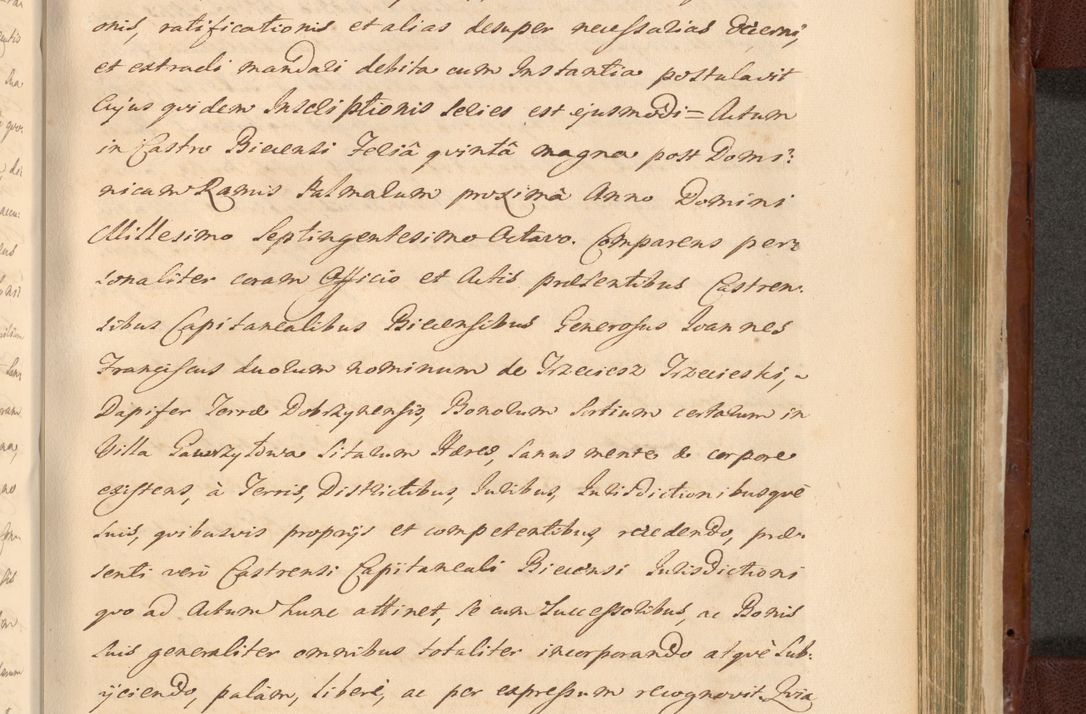 onis, ratificationis et alias desuper necessarias decerni,
et extradi mandari debita cum Instantia postulavit
Cujus quidem Inscriptionis Series est ejusmodi = Actum
in Castro Biecensi Feriâ quintâ magna post Domi:
nicam Ramis Palmarum proximâ Anno Domini
Millesimo Septingentesimo Octavo. Comparens per:
sonaliter coram Officio et Actis præsentibus Castren:
sibus Capitanealibus Biecensibus Generosus Joannes
Franciscus duorum nominum de Trzeciesz Trzecieski,
Dapifer Terræ Dobrzynensis, Bonorum Sortium certarum in
Villa Gawrzyłowa Sitarum Hæres, Sanus mente & corpore
existens, à Terris, Districtibus, Juribus, Jurisdictionibusquè
suis, quibusvis proprijs et competentibus, recedendo, præ:
senti verò Castrensi Capitaneali Biecensi Jurisdictioni
quo ad Actum hunc attinet, se cum Successoribus, ac Bonis
suis generaliter omnibus totaliter incorporando atquè Sub:
ijciendo, palàm, liberè, ac per expressum recognovit. Quia